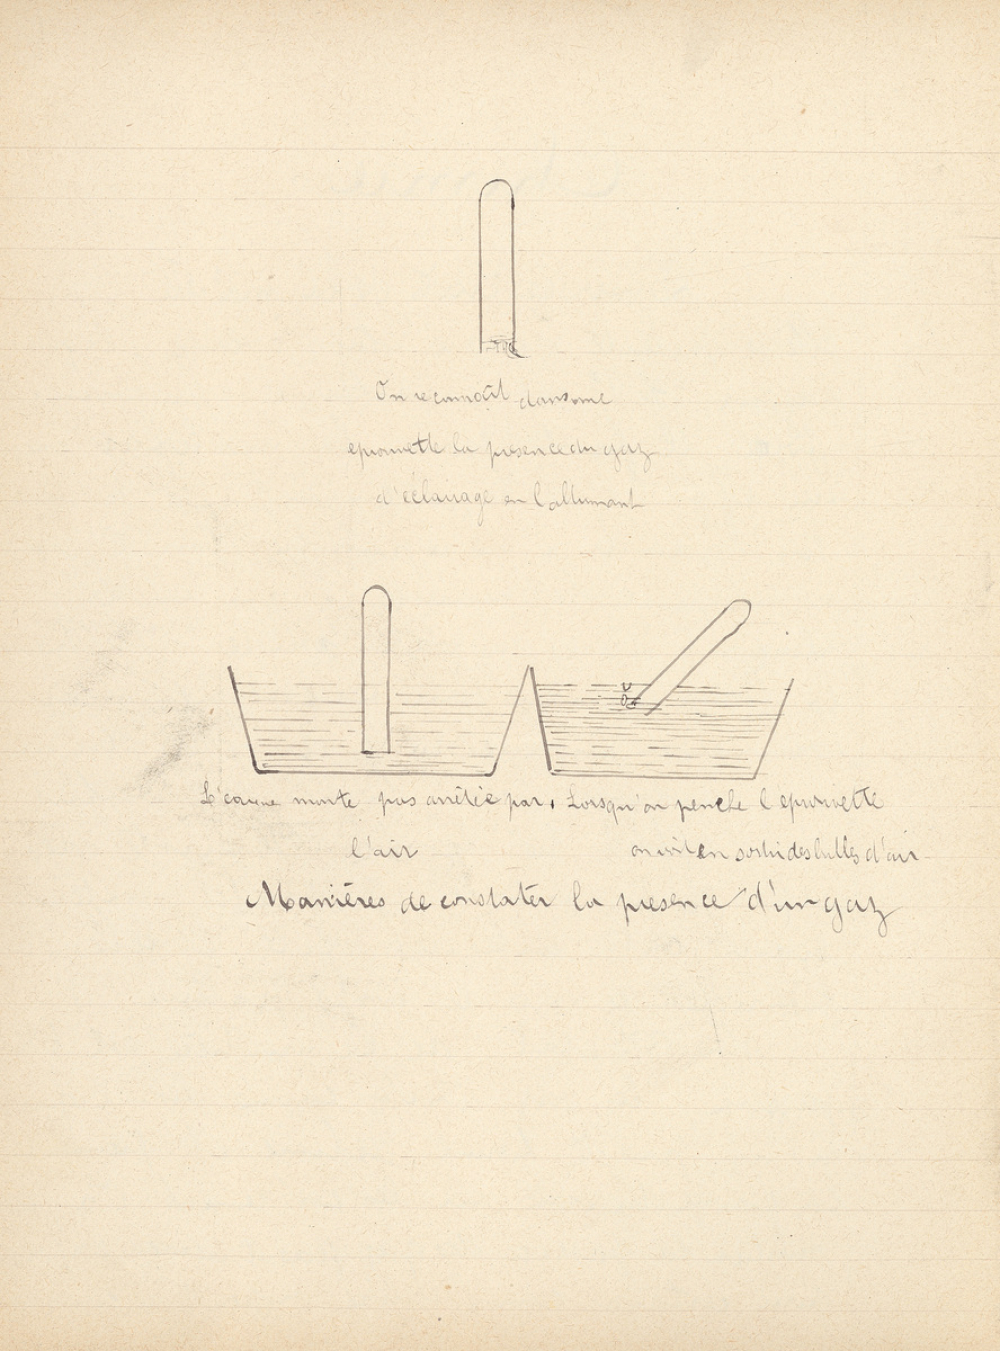 On reconnaît dans une
eprouvette la presence du gaz
d'éclairage en l'allumant
L'eau ne monte pas arrêtée par
l'air
Lorsqu'on penche l'eprouvette
on voit en sortir des bulles d'air
Manières de constater la presence d'un gaz